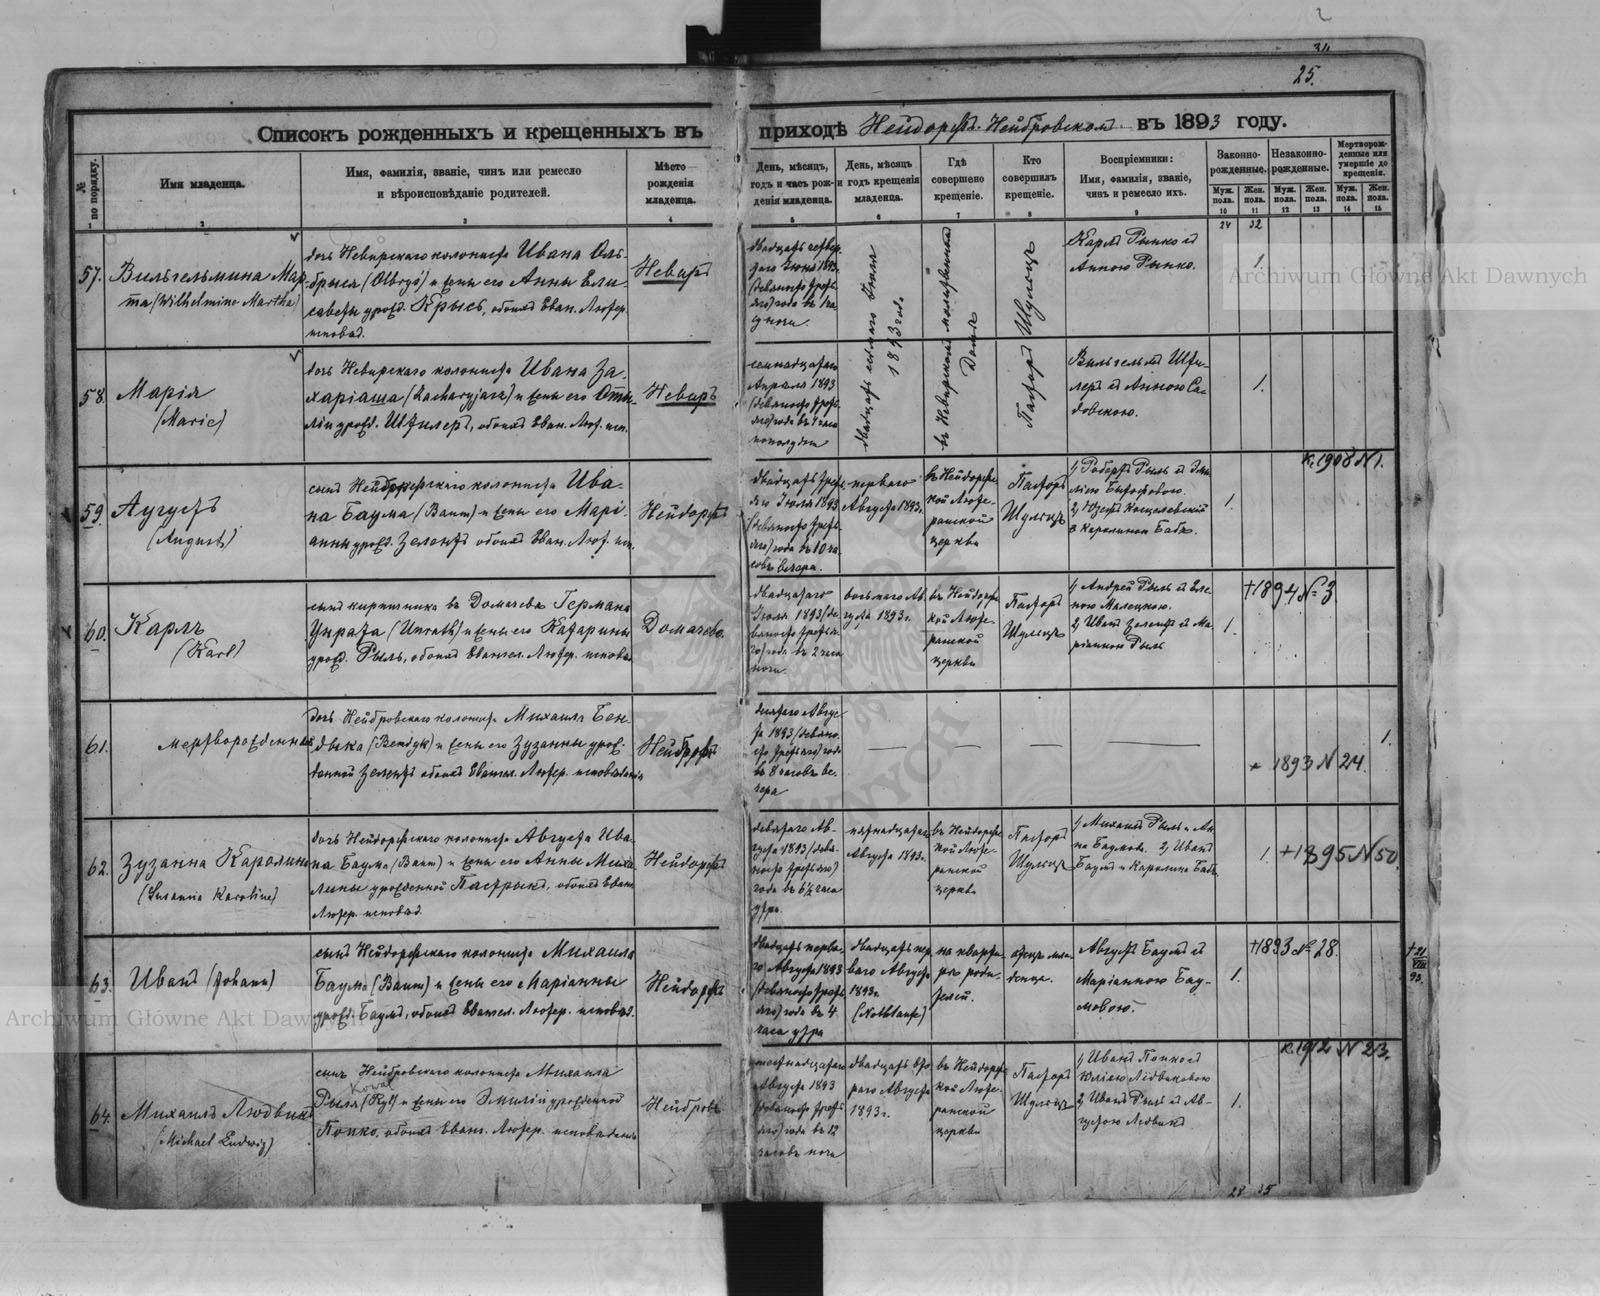 25.
Списокъ рожденныхъ и крещенныхъ въ приходѣ Нейдорф. Нейбровскомъ въ 1893 году.
№ по порядку.
Имя младенца.
Имя, фамилія, званіе, чинъ или ремесло
и вѣроисповѣданіе родителей.
Мѣсто
рожденія
младенца.
День, мѣсяцъ,
годъ и часъ рож-
денія младенца.
День, мѣсяцъ
и годъ крещенія
младенца.
Гдѣ
совершено
крещеніе.
Кто
совершилъ
крещеніе.
Воспріемники:
Имя, фамилія, званіе,
чинъ и ремесло ихъ.
Законно-
рожденные.
Незаконно-
рожденные.
Мертворож-
денные или
умершіе до
крещенія.
Муж. пола.
Жен. пола.
Муж. пола.
Жен. пола.
Муж. пола.
Жен. пола.
1 2 3 4 5 6 7 8 9 10 11 12 13 14 15
24 32
57.
Вильгельмина Мар-
та (Wilhelmine Martha)
дочь Невирскаго колониста Ивана Оль-
брыса (Olbrys) и жены его Анны Ели-
саветы урожд. Крысь, обоихъ Еван. Лютер.
исповѣд.
Невиръ
двадцать четвер-
таго Іюня 1893
(девяносто треть-
яго) года въ 1 ча
ночи.
двадцать седьмаго Іюля
1893 года
въ Невирскомъ молитвенномъ
Домѣ
Пасторъ Шульцъ
Карлъ Рынко и
Анною Рынко.
1.
58.
Марія
(Marie)
дочь Невирскаго колониста Ивана За-
харіаша (Zacharyjasz) и жены его Оти-
ліи урожд. Штилеръ, обоихъ Еван. Лют. исп.
Невиръ
семнадцатаго
Апрѣля 1893
(девяносто треть-
яго) года въ 1 часа
пополудни
Вильгельмъ Шти-
леръ и Анною Са-
довскою.
1.
59.
Августъ
(August)
сынъ Нейдорфскаго колониста Ива-
на Баума (Baum) и жены его Марі-
анны урожд. Зелентъ обоихъ Еван. Лют. исп.
Нейдорфъ
двадцать треть-
яго Іюля 1893
(девяносто треть-
яго) года въ 10 ча-
совъ вечера.
перваго
Августа 1893г.
въ Нейдорфс-
кой Люте-
ранской
церкви
Пасторъ
Шульцъ
1) Робертъ Рыль и Эми-
ліею
2) Юзефъ
и Каролиною Баба.
1.
к. 1908 N 1.
60.
Карлъ
(Karl)
сынъ кирпичника въ Домачевѣ Германа
Унрата (Unrath) и жены его Катарины
урожд. Рыль, обоихъ Евангел. Лютер. исповѣд.
Домачево.
двадцатаго
Іюля 1893 (де-
вяносто треть-
яго) года въ 2 часа
ночи.
восьмаго Ав-
густа 1893г.
въ Нейдорфс-
кой Люте-
ранской
церкви
Пасторъ
Шульцъ
1) Андрей Рыль и Еле-
ною Малецкою.
2) Иванъ Зелентъ и Ма-
ріанною Рыль
1.
†1894 № 3.
61.
мертворожденная
дочь Нейбровскаго колониста Михаила Бен-
дыка (Bendyk) и жены его Зузанны урож-
денной Зелентъ обоихъ Евангел. Лютер. исповѣданія
Нейбровъ
девятаго Авгус-
та 1893 (девяно-
сто третьяго) года
въ 8 часовъ ве-
чера
— — — —
1.
* 1893 N 24.
62.
Зузанна Каролина
(Susanna Karoline)
дочь Нейдорфскаго колониста Августа Ива-
на Баума (Baum) и жены его Анны Миха-
лины урожденной Пастрыкъ, обоихъ Еванг.
Лютер. исповѣд.
Нейдорфъ
девятаго Ав-
густа 1893 (девя-
носто третьяго)
года въ 6½ часа
утра.
пятнадцатаго
Августа 1893г.
въ Нейдорфс-
кой Люте-
ранской
церкви
Пасторъ
Шульцъ
1) Михаилъ Рыль и Ан-
на Баумова. 2) Иванъ
Баумъ и Каролина Баба
1.
†1895 N 50.
63.
Иванъ (Johann)
сынъ Нейдорфскаго колониста Михаила
Баума (Baum) и жены его Маріанны
урожд. Баумъ, обоихъ Евангел. Лютер. исповѣд.
Нейдорфъ
двадцать перва-
го Августа 1893
(девяносто треть-
яго) года въ 4
часа утра
двадцать пер-
ваго Августа
1893г.
(Nothtaufe)
на кварти-
рѣ роди-
телей.
отецъ мла-
денца.
Августъ Баумъ и
Маріанною Бау-
мовою.
1.
†1893 № 28.
† 21
VIII
93.
64.
Михаилъ Людвикъ
(Michael Ludwig)
сынъ Нейбровскаго колониста Михаила
Kowal
Рыля (Ryl) и жены его Эмиліи урожденной
Попко, обоихъ Еванг. Лютер. исповѣданія
Нейбровъ
Августа 1893
(девяносто треть-
яго) года въ 12
часовъ ночи
двадцать вто-
раго Августа
1893г.
въ Нейдорфс-
кой Люте-
ранской
церкви
Пасторъ
Шульцъ
1) Иванъ Попко и
Юліею Людвиковою
2) Иванъ Рыль и Ав-
густою Людвикъ
1.
к. 1912 N 23.
28 35
Archiwum Główne Akt Dawnych
Archiwum Główne Akt Dawnych